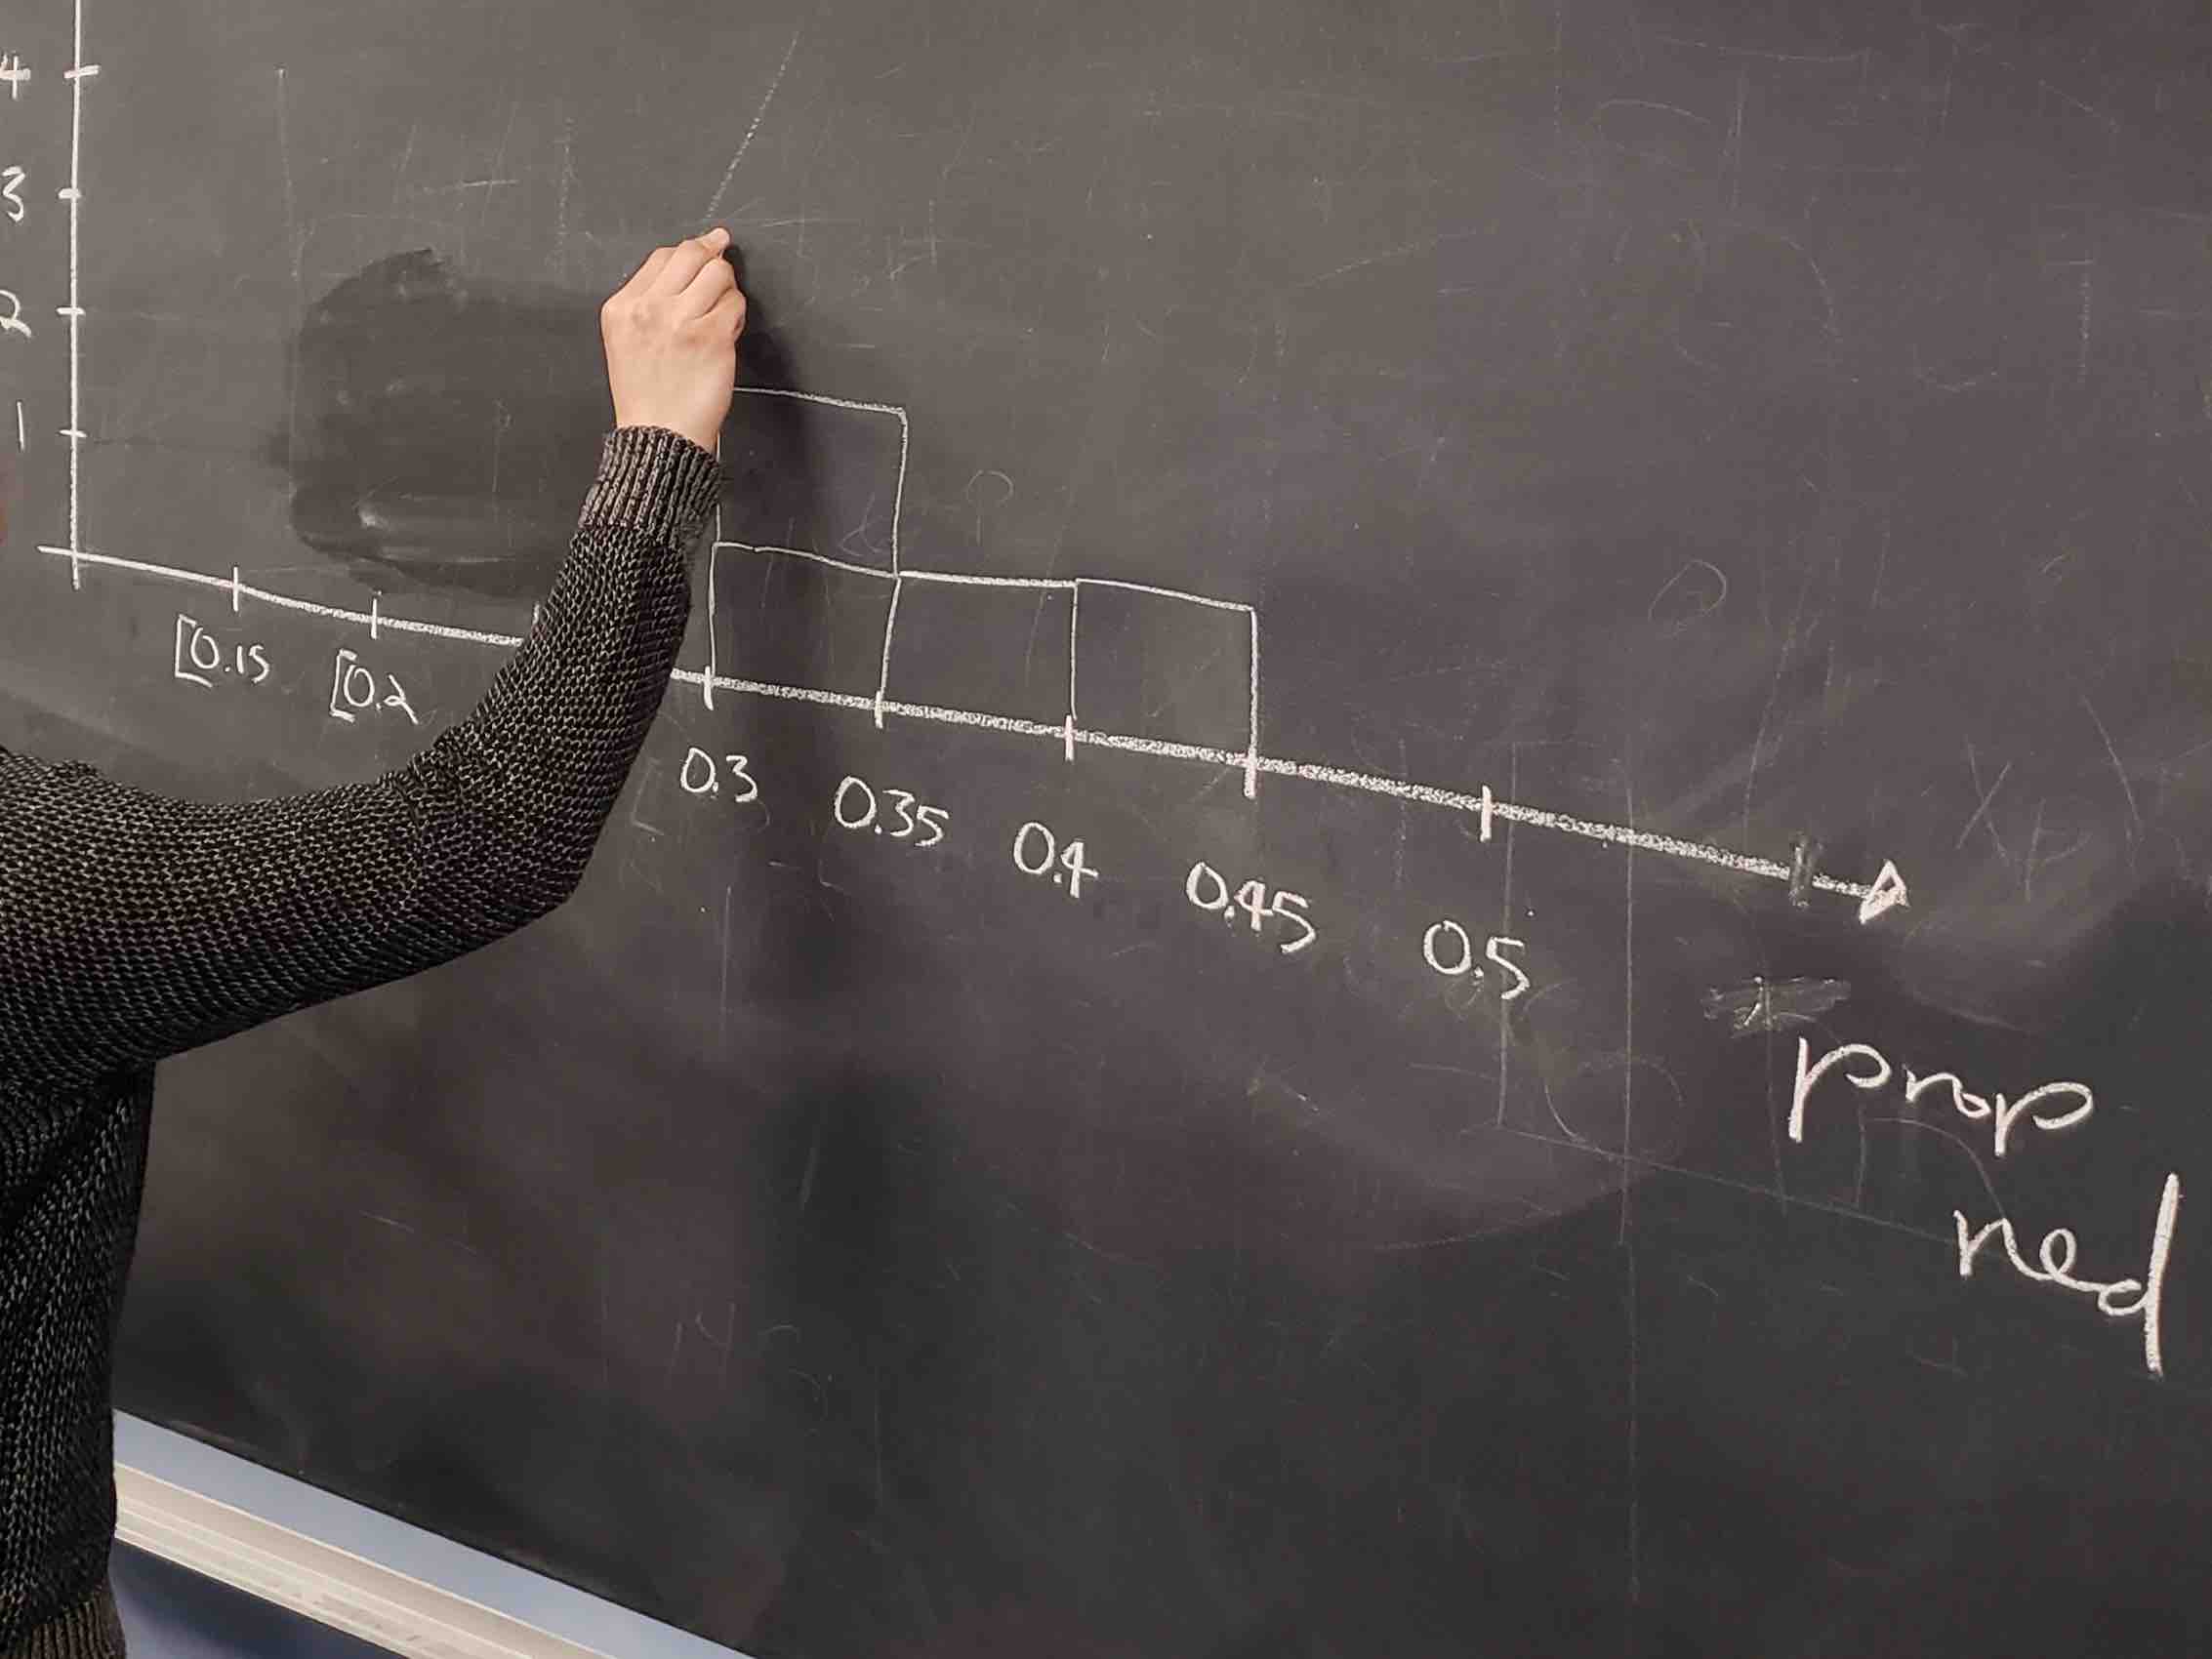 4
3
2
1
[0.15 [0.2 0.3 0.35 0.4 0.45 0.5
prop
red